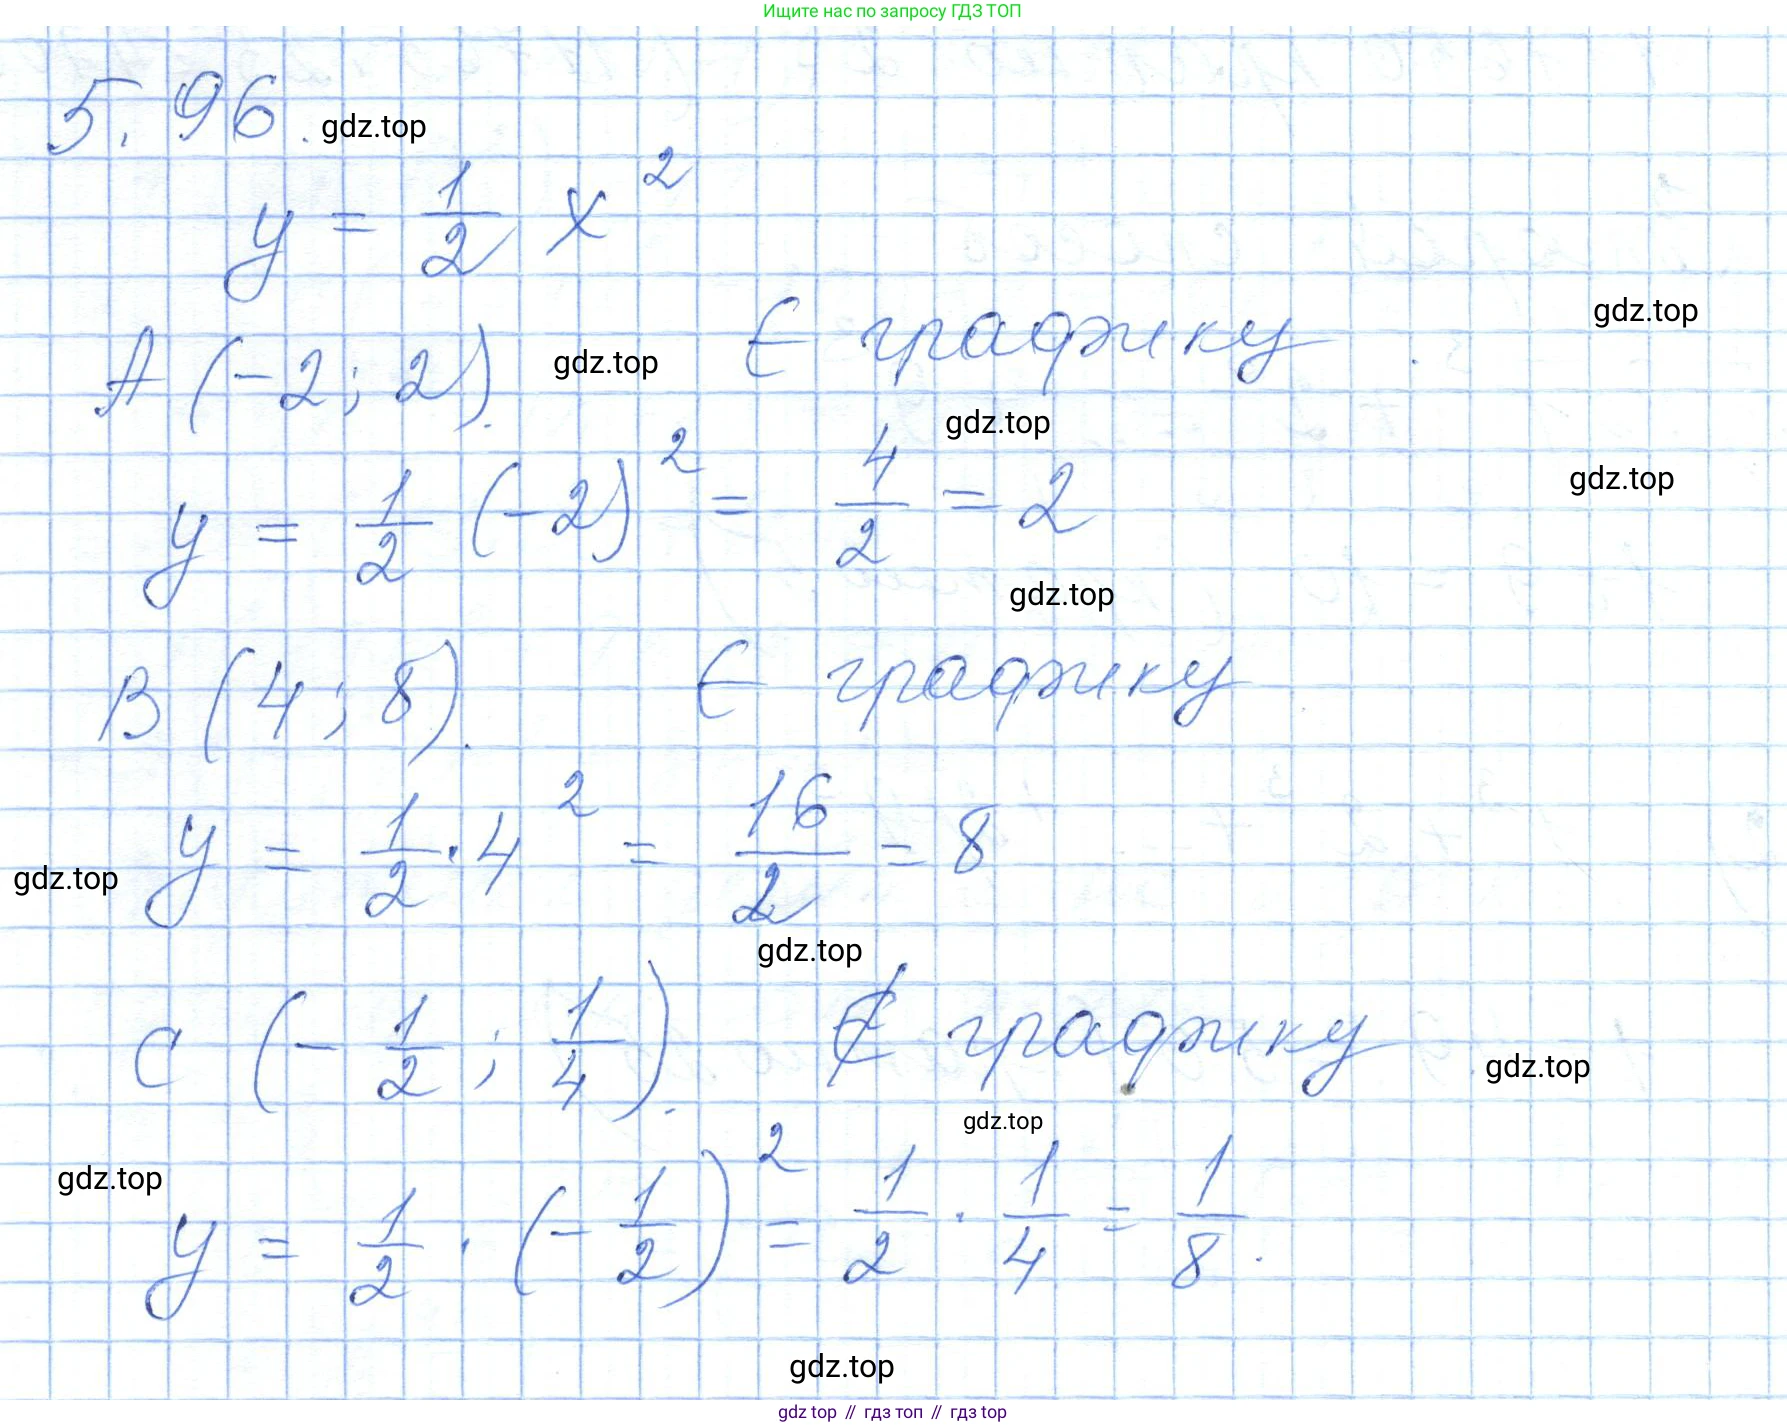 Ищите нас по запросу ГДЗ ТОП
5.96. gdz.top
y = 1/2 x²
gdz.top
A (-2; 2). gdz.top ∈ графику.
gdz.top
gdz.top
y = 1/2 (-2)² = 4/2 = 2
gdz.top
B (4; 8). ∈ графику
y = 1/2 · 4² = 16/2 = 8
gdz.top
gdz.top
C (-1/2; 1/4). ∉ графику
gdz.top
gdz.top
gdz.top
y = 1/2 · (-1/2)² = 1/2 · 1/4 = 1/8.
gdz.top
gdz top // гдз топ // гдз top